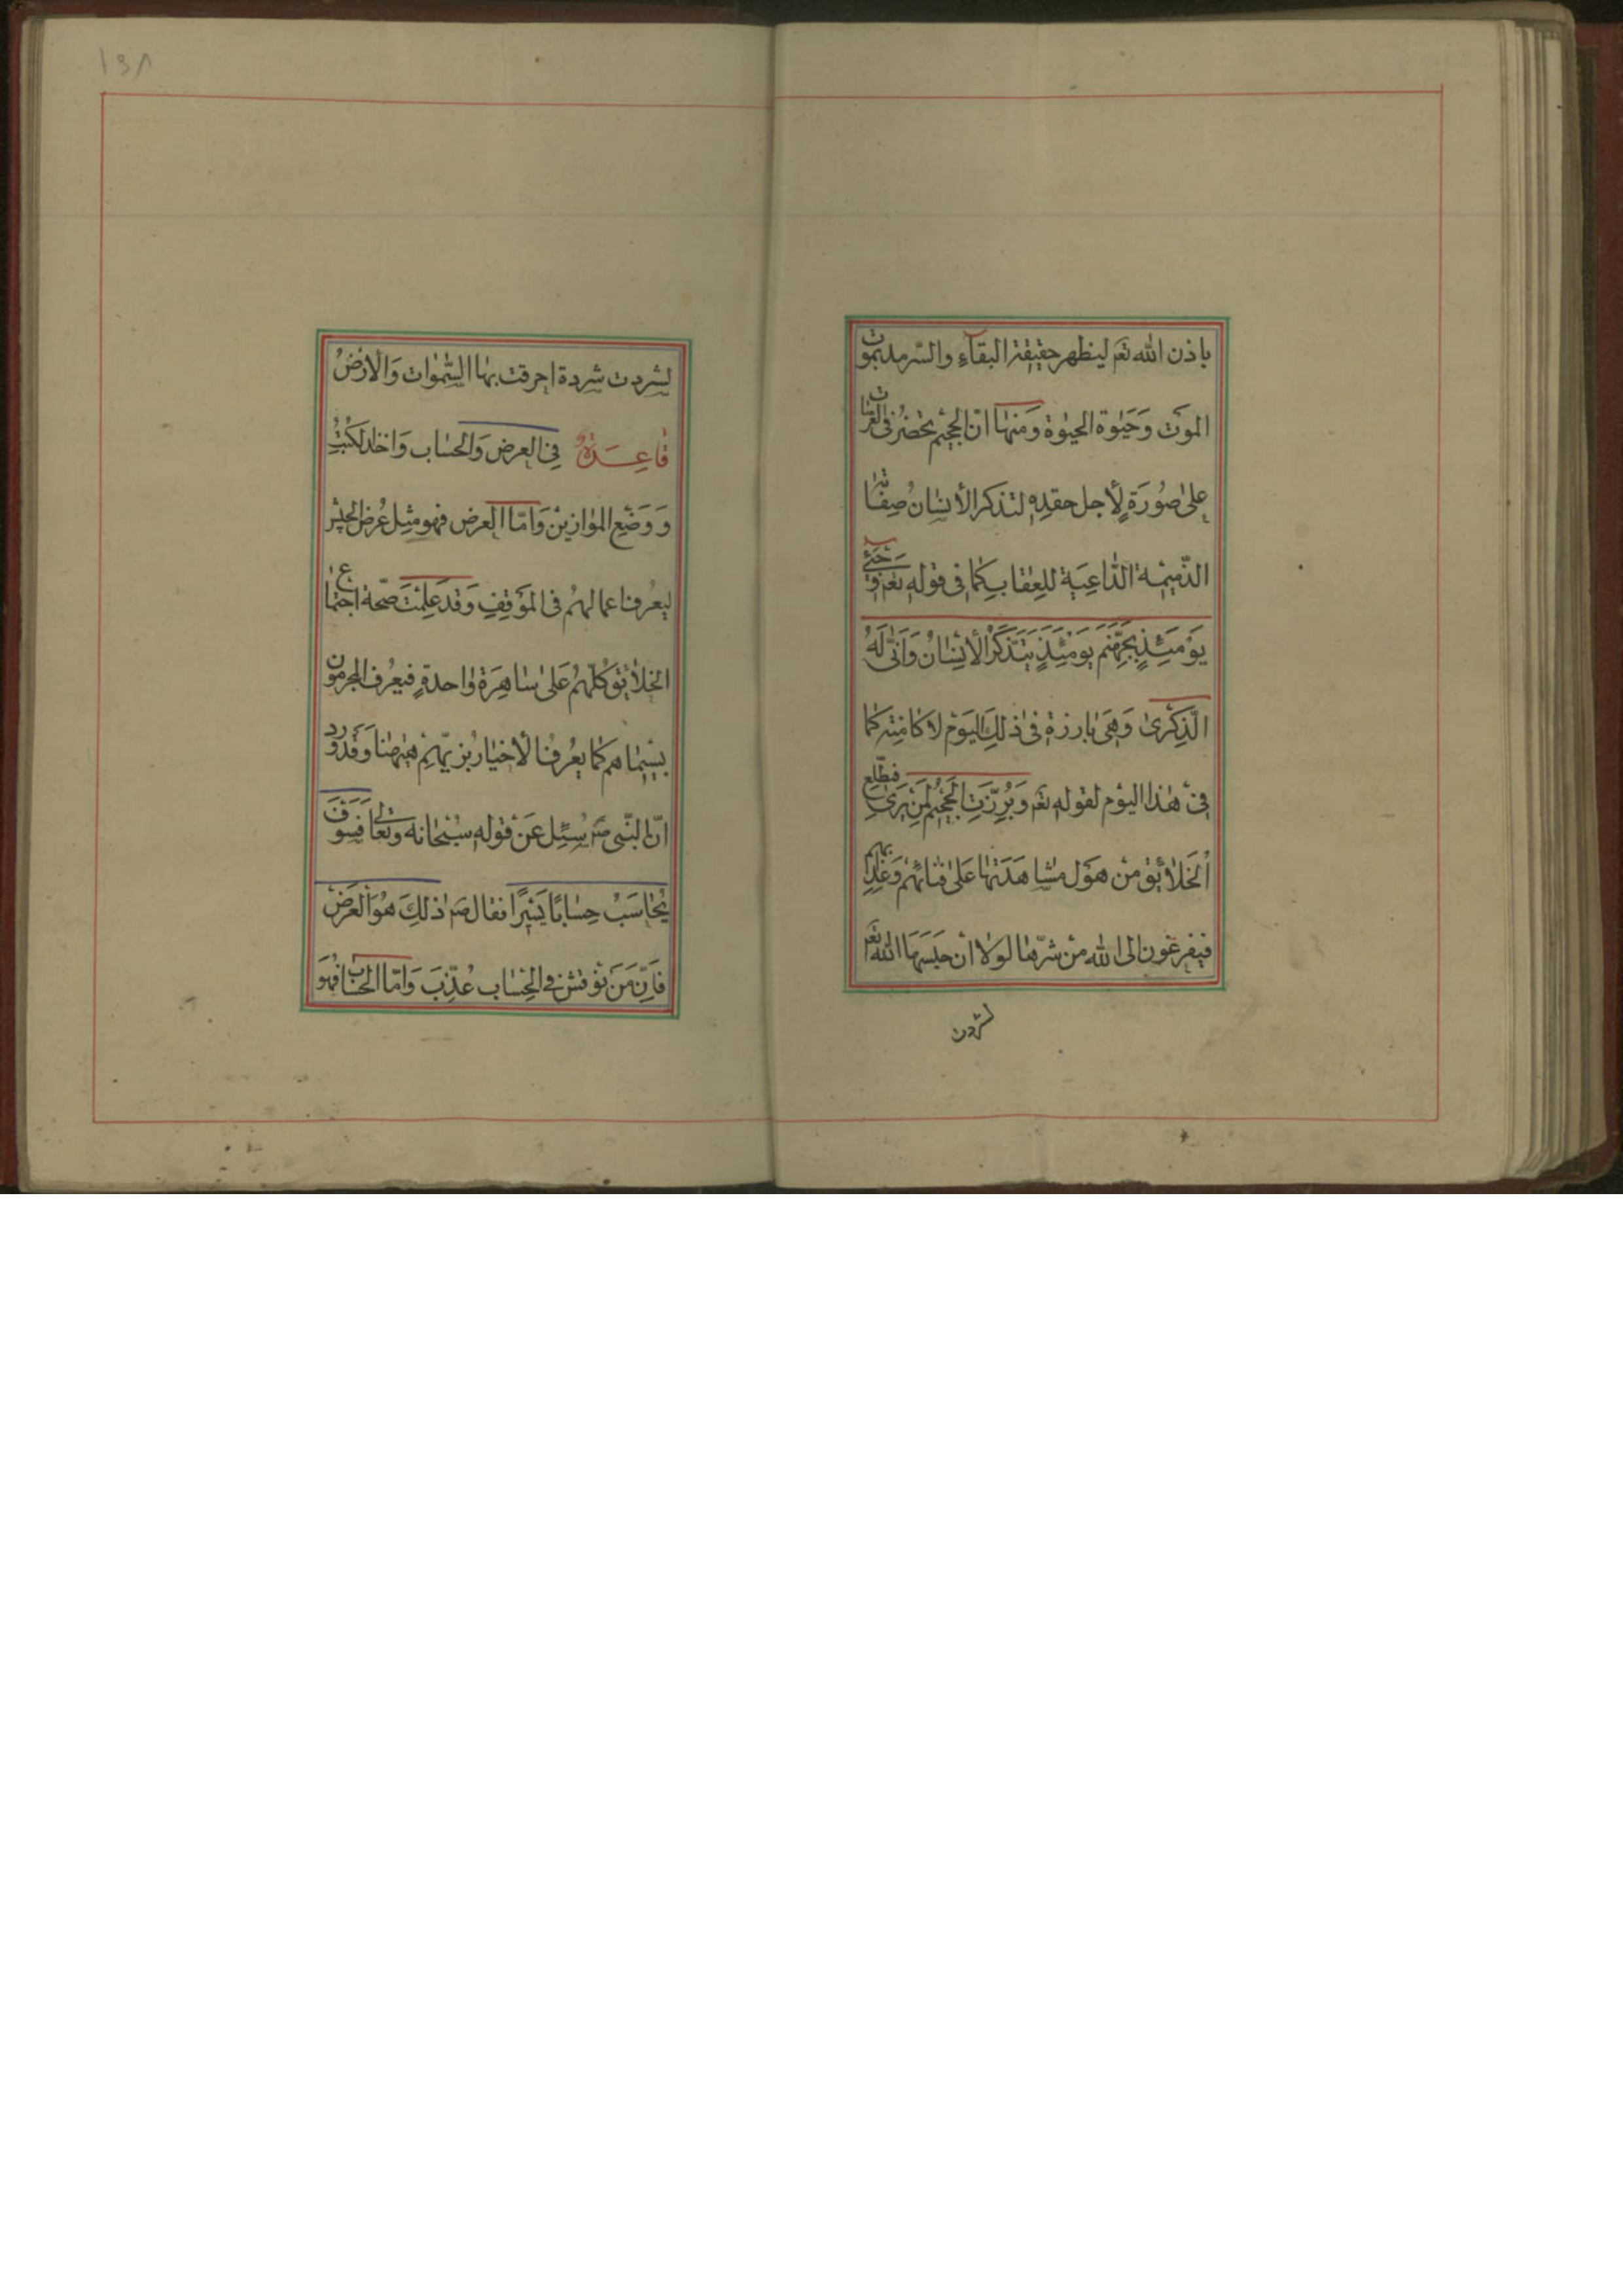 باذن الله تعَ لينظهر حقيقة البقآءِ والسّرمد بموت
الموت وَحَيٰوة الحيٰوة وَمنهٰا انّ الجحيم تحضرُ فى العرَصٰات
على صُورَةٍ لأجل حقدِهِ لتذكر الأنسٰان صِفٰاته
الذّميمَة الدّاعِيَة للعِقٰاب كمٰا فى قوله تعَ وَجئَ
يَوْمَئِذٍ بِجَهَنَّمَ يَوْمَئِذٍ يَتَذَكَّرُ الْأِنْسٰانُ وَاَنّٰى لَهُ
الذِّكرىٰ وَهىَ بٰارزة فى ذلِكَ اليَوْم لا كٰامِنة كمٰا
فى هٰذا اليوْم لقوله تعَ وَبُرِّزَتِ الْجَحِيمُ لِمَنْ يَرىٰ فيطّلع
اُلخَلٰائِق مِن هَوْل مشٰاهَدَتهٰا عَلىٰ فنٰائهُم وَعَذٰابهم
فيفزعُون الى الله من شرّهٰا لولٰا اَن حَبَسَهَا الله تعَ
لشردت
١٥٨
لشردت شردة احرقت بهَا السَّمٰوات وَالْأَرْضُ
قٰاعِدَةٌ فى العرض وَالحسٰاب وَاخذ الكُتُبِ
وَ وَضْعِ المَوٰازين وَامّا العرض فهو مثِل عُرض الجَيْش
ليعُرف اعمالهُم فى المَوْقِفِ وَقد عَلِمْتَ صّحة اجتمٰاع
الخلٰايق كلّهُم عَلىٰ سٰاهِرَةٍ وٰاحدةٍ فيعُرف المجرمون
بِسيمٰاهم كمٰا يعُرف الأخيٰارُ بزيّهِم هيٰهنا وَقد ورد
انّ النّبى صَ سُئِل عَن قوله سُبْحٰانه وتعٰالى فَسَوْفَ
يُحٰاسَبُ حِسٰابًا يَسيرًا فقال صَ ذلِكَ هُوَ العَرَضْ
فَاِنّ مَن نُوقش فى الحِسٰاب عُذِّبَ وَامّا الحسٰاب فهُوَ